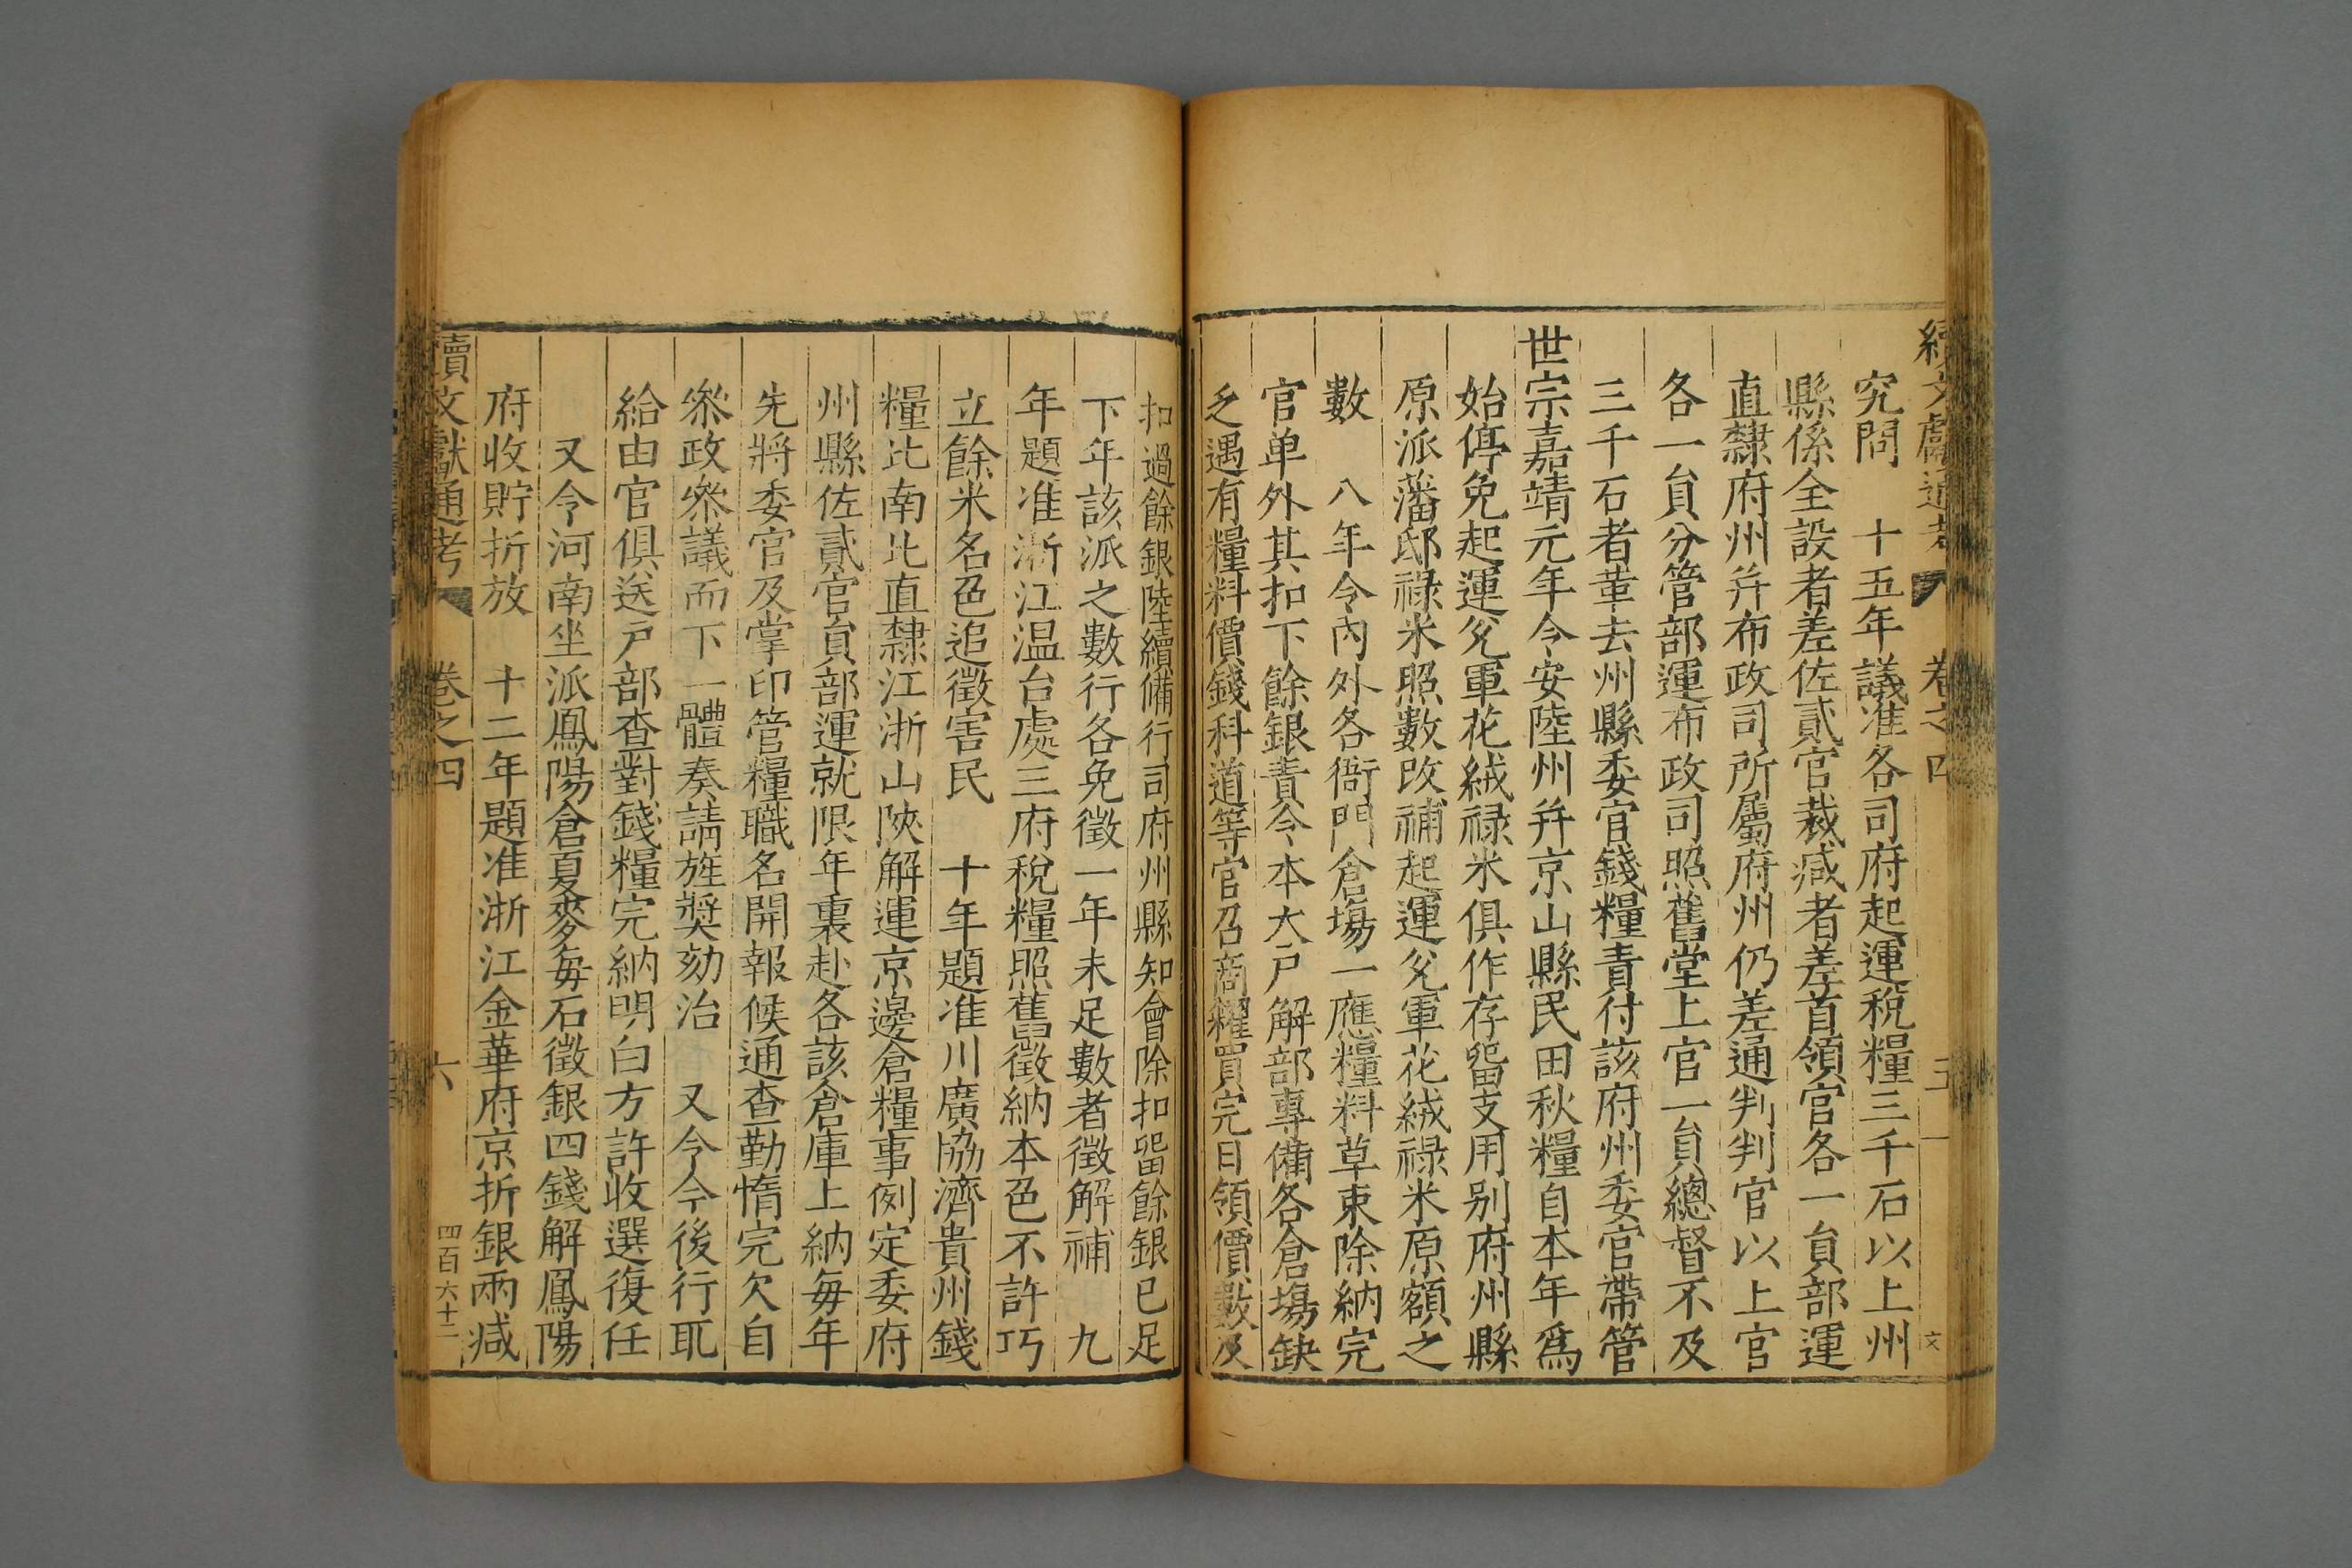 續文獻通考 卷之四 五 文
究問 十五年議准各司府起運稅糧三千石以上州
縣係全設者差佐貳官裁减者差首領官各一員部運
直隸府州并布政司所屬府州仍差通判判官以上官
各一員分管部運布政司照舊堂上官一員總督不及
三千石者革去州縣委官錢糧責付該府州委官帶管
世宗嘉靖元年令安陸州并京山縣民田秋糧自本年爲
始停免起運兌軍花絨禄米俱作存留支用别府州縣
原派藩邸禄米照數改補起運兌軍花絨禄米原額之
數 八年令內外各衙門倉塲一應糧料草束除納完
官单外其扣下餘銀責令本大戸解部專備各倉塲缺
乏遇有糧料價錢科道等官召商糴買完日領價數及
扣過餘銀陸續備行司府州縣知會除扣留餘銀已足
下年該派之數行各免徵一年未足數者徵解補 九
年題准浙江温台處三府稅糧照舊徵納本色不許巧
立餘米名色追徵害民 十年題准川廣協濟貴州錢
糧比南北直隸江浙山陝解運京邊倉糧事例定委府
州縣佐貳官員部運就限年裏赴各該倉庫上納每年
先將委官及掌印管糧職名開報候通查勤惰完欠自
叅政叅議而下一體奏請旌奬劾治 又令今後行取
給由官俱送戸部查對錢糧完納明白方許收選復任
又令河南坐派鳳陽倉夏麥每石徵銀四錢解鳳陽
府收貯折放 十二年題准浙江金華府京折銀兩减
續文獻通考 卷之四 六 四百六十二